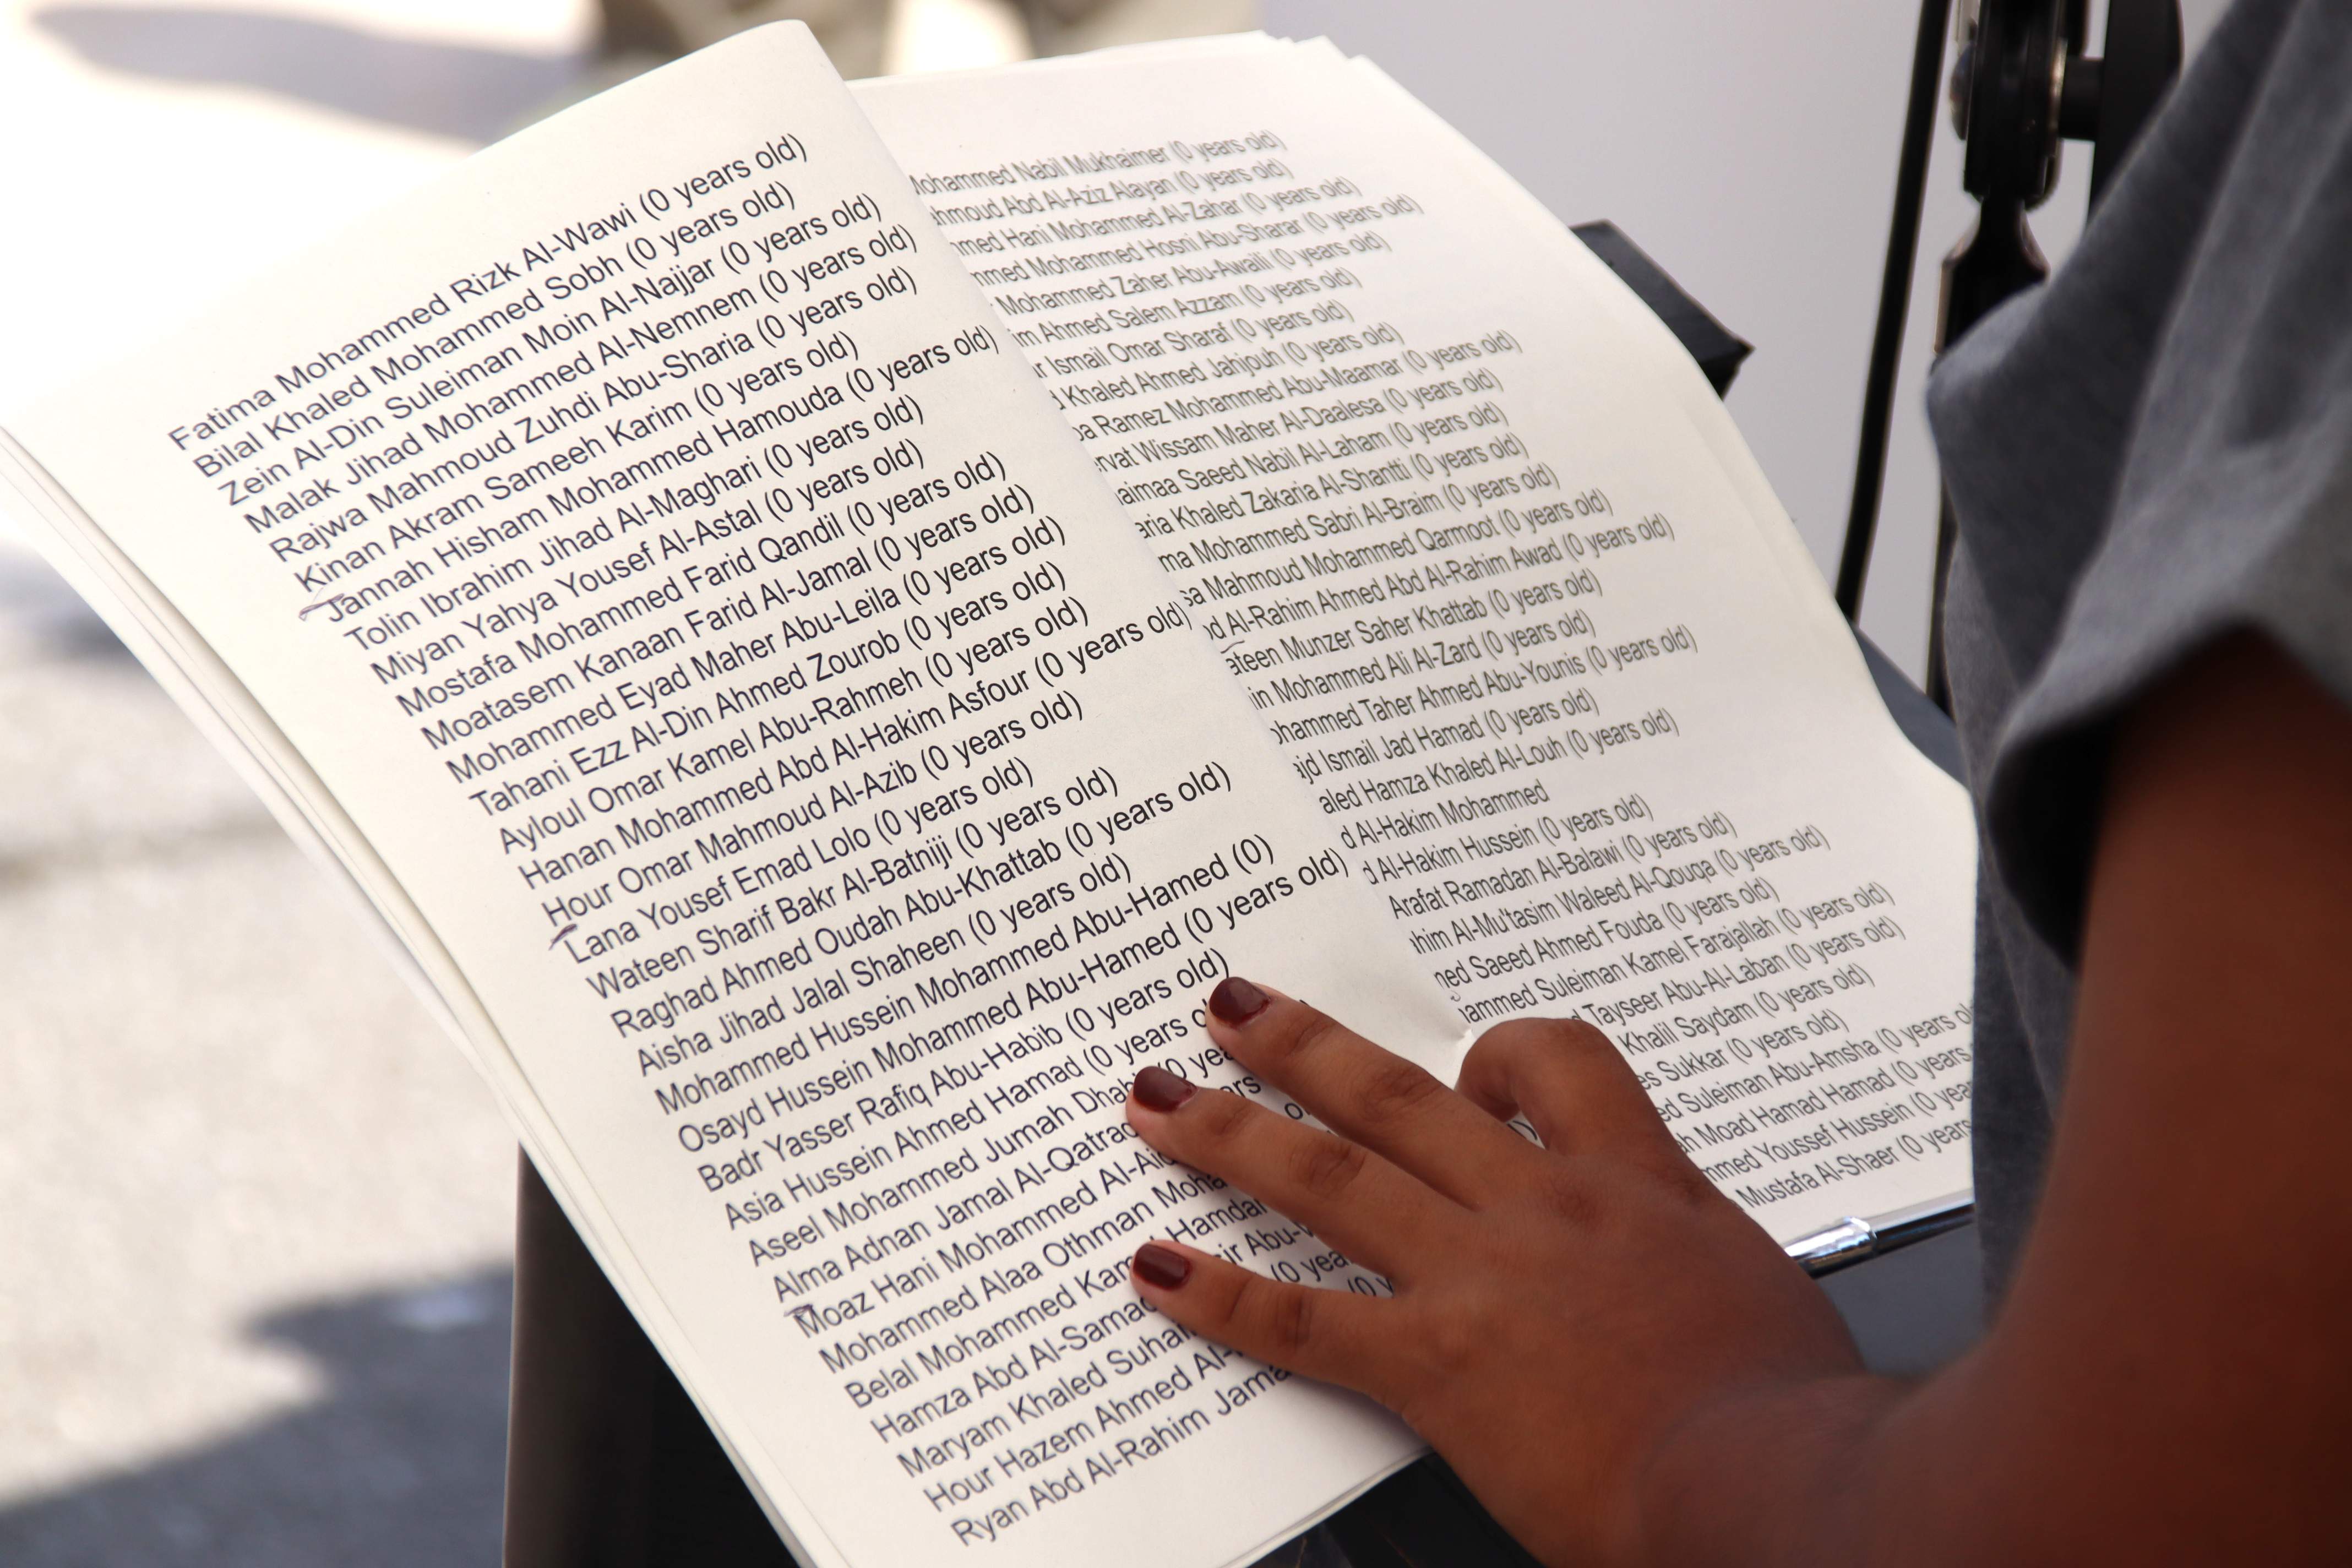 Fatima Mohammed Rizk Al-Wawi (0 years old)
Bilal Khaled Mohammed Sobh (0 years old)
Zein Al-Din Suleiman Moin Al-Najjar (0 years old)
Malak Jihad Mohammed Al-Nemnem (0 years old)
Rajwa Mahmoud Zuhdi Abu-Sharia (0 years old)
Kinan Akram Sameeh Karim (0 years old)
Jannah Hisham Mohammed Hamouda (0 years old)
Tolin Ibrahim Jihad Al-Maghari (0 years old)
Miyan Yahya Yousef Al-Astal (0 years old)
Mostafa Mohammed Farid Qandil (0 years old)
Moatasem Kanaan Farid Al-Jamal (0 years old)
Mohammed Eyad Maher Abu-Leila (0 years old)
Tahani Ezz Al-Din Ahmed Zourob (0 years old)
Ayloul Omar Kamel Abu-Rahmeh (0 years old)
Hanan Mohammed Abd Al-Hakim Asfour (0 years old)
Hour Omar Mahmoud Al-Azib (0 years old)
Lana Yousef Emad Lolo (0 years old)
Wateen Sharif Bakr Al-Batniji (0 years old)
Raghad Ahmed Oudah Abu-Khattab (0 years old)
Aisha Jihad Jalal Shaheen (0 years old)
Mohammed Hussein Mohammed Abu-Hamed (0)
Osayd Hussein Mohammed Abu-Hamed (0 years old)
Badr Yasser Rafiq Abu-Habib (0 years old)
Asia Hussein Ahmed Hamad (0 years
Aseel Mohammed Jumah
Alma Adnan Jamal
Moaz Hani Mohammed
Mohammed Alaa Othman
Belal Mohammed
Hamza Abd
Maryam Khaled
Hour Hazem Ahmed
Ryan Abd Al-Rahim
Mohammed Nabil Mukhaimer (0 years old)
Abd Al-Aziz Alayan (0 years old)
Hani Mohammed Al-Zahar (0 years old)
Mohammed Hosni Abu-Sharar (0 years old)
Mohammed Zaher Abu-Awaili (0 years old)
Ahmed Salem Azzam (0 years old)
Ismail Omar Sharaf (0 years old)
Khaled Ahmed Jahjouh (0 years old)
Ramez Mohammed Abu-Maamar (0 years old)
Wissam Maher Al-Daalesa (0 years old)
Saeed Nabil Al-Laham (0 years old)
Khaled Zakaria Al-Shantti (0 years old)
Mohammed Sabri Al-Braim (0 years old)
Mahmoud Mohammed Qarmoot (0 years old)
Al-Rahim Ahmed Abd Al-Rahim Awad (0 years old)
Munzer Saher Khattab (0 years old)
Mohammed Ali Al-Zard (0 years old)
Taher Ahmed Abu-Younis (0 years old)
Ismail Jad Hamad (0 years old)
Hamza Khaled Al-Louh (0 years old)
Al-Hakim Mohammed
Al-Hakim Hussein (0 years old)
Arafat Ramadan Al-Balawi (0 years old)
Al-Mu'tasim Waleed Al-Qouqa (0 years old)
Saeed Ahmed Fouda (0 years old)
Suleiman Kamel Farajallah (0 years old)
Tayseer Abu-Al-Laban (0 years old)
Khalil Saydam (0 years old)
Sukkar (0 years old)
Suleiman Abu-Amsha (0 years
Moad Hamad Hamad (0 years
Youssef Hussein (0
Mustafa Al-Shaer (0 years